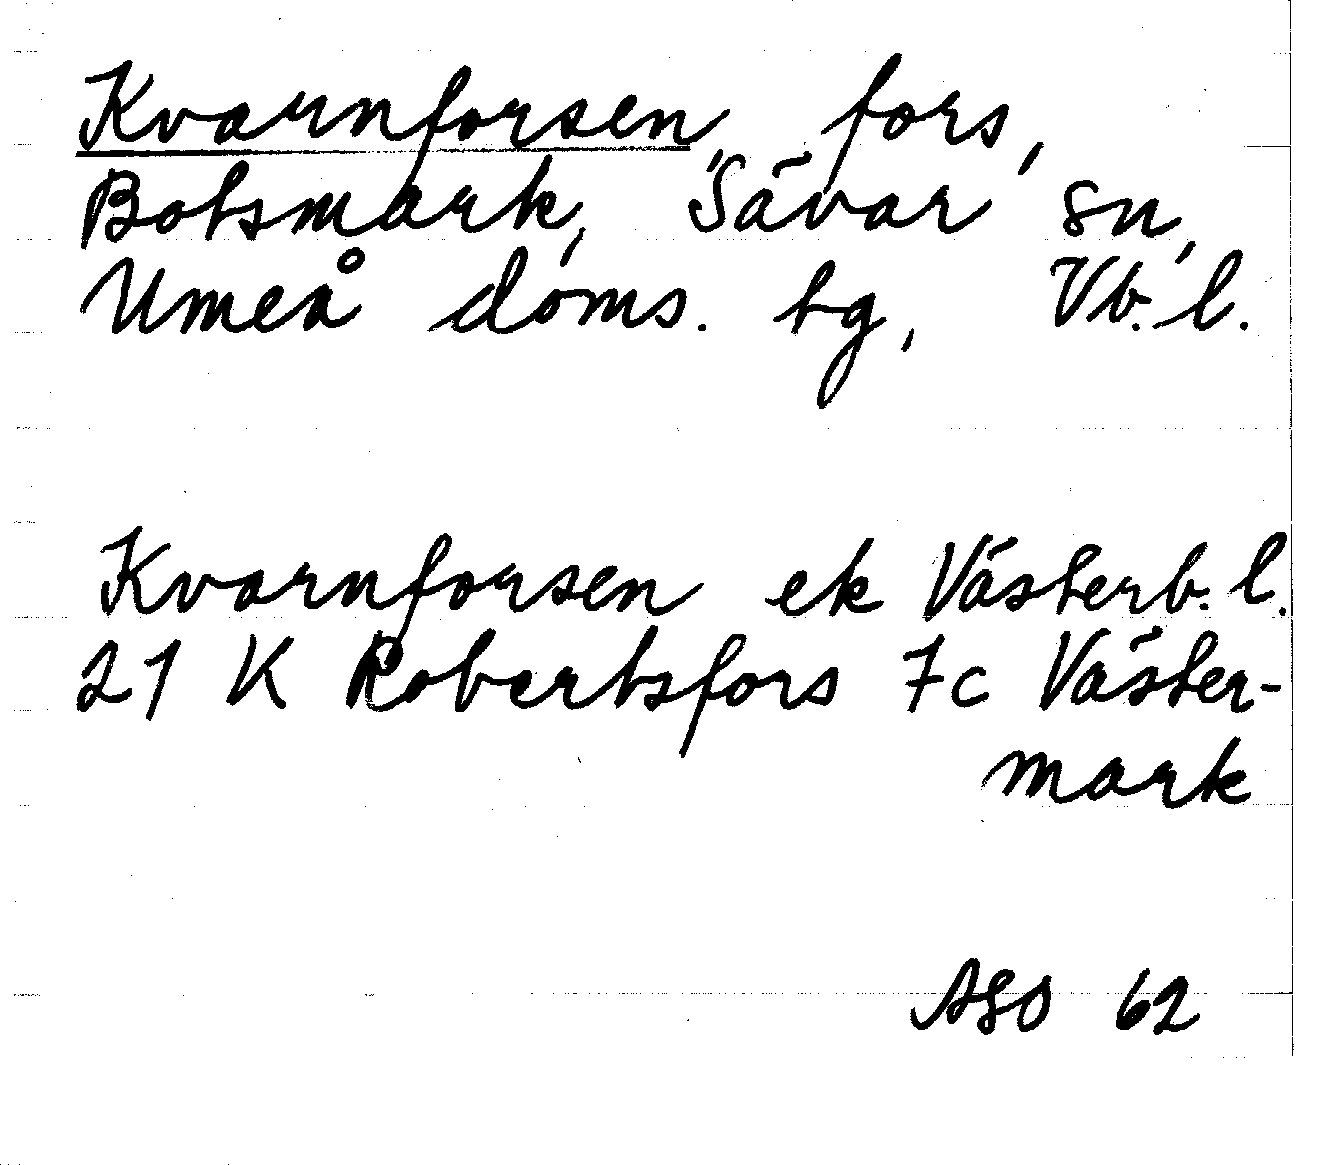 Kvarnforsen, fors,
Botsmark, Sävar sn,
Umeå doms. tg, Vb. l.
Kvarnforsen ek Västerb. l.
21 K Robertsfors 7c Väster-
mark
ASO 62